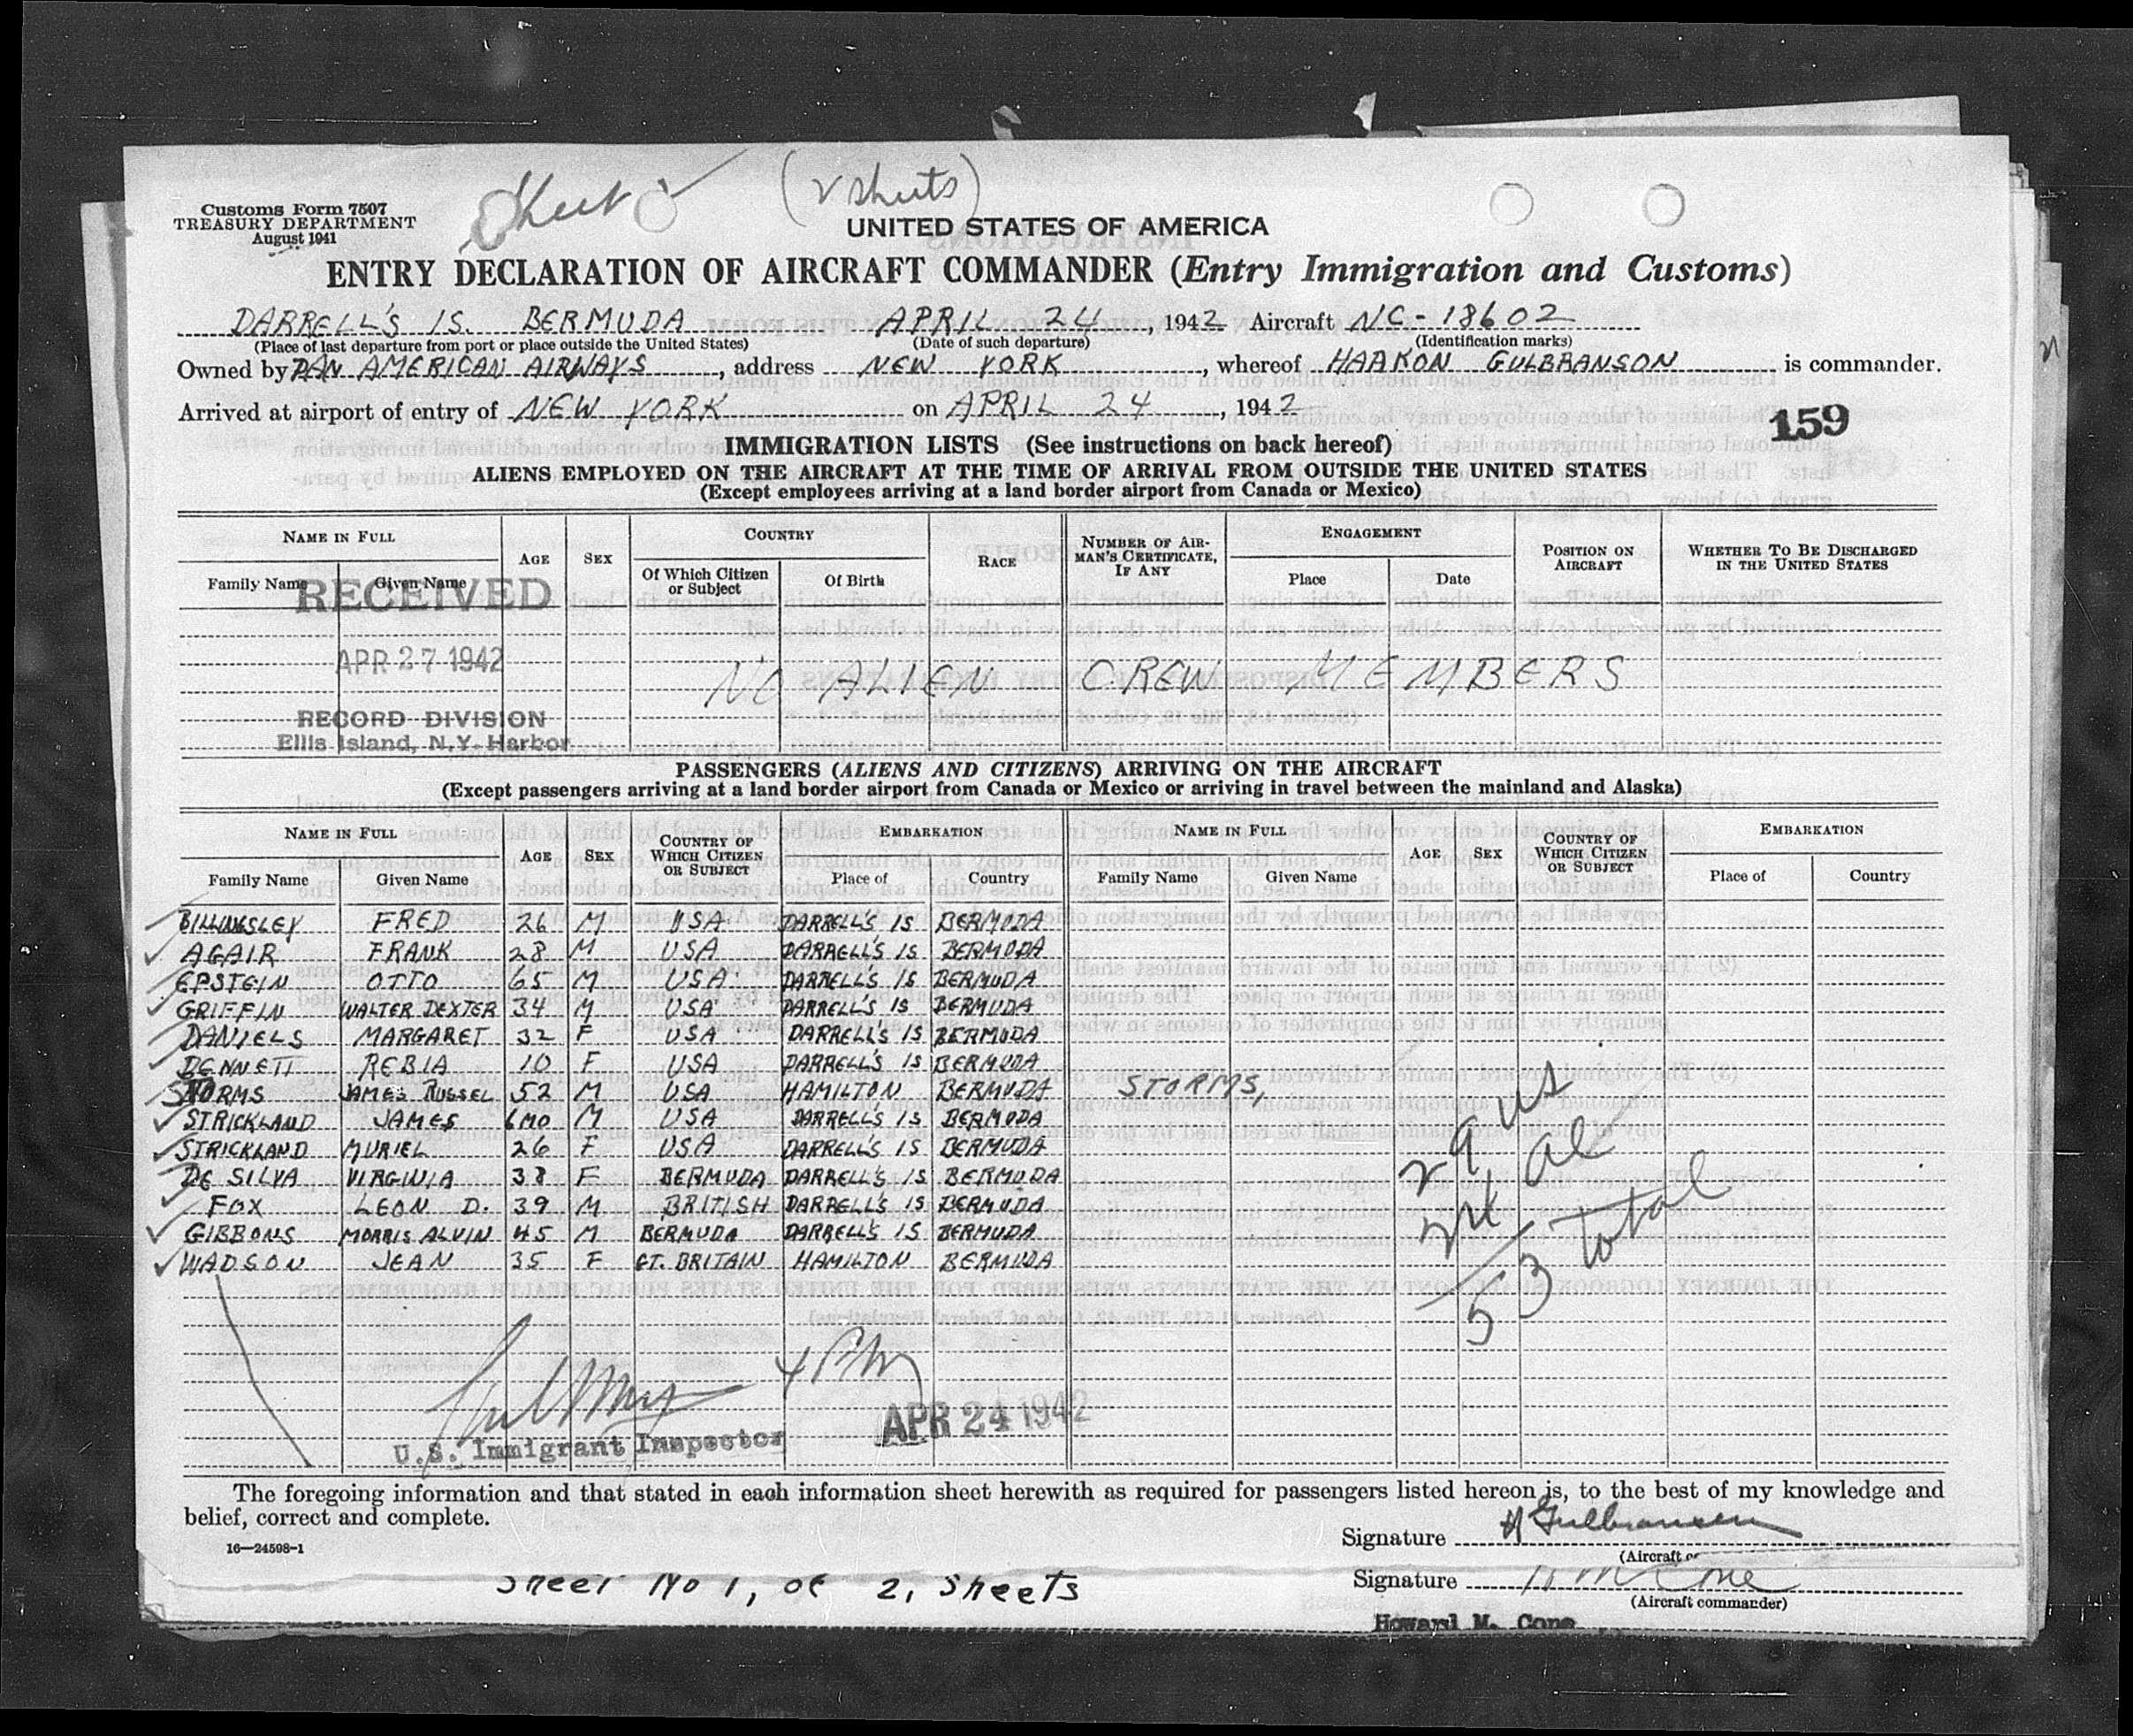 Sheet (2 sheets)
Customs Form 7507
TREASURY DEPARTMENT
August 1941
UNITED STATES OF AMERICA
ENTRY DECLARATION OF AIRCRAFT COMMANDER (Entry Immigration and Customs)
DARRELL'S IS. BERMUDA APRIL 24, 1942 Aircraft NC-18602
(Place of last departure from port or place outside the United States) (Date of such departure) (Identification marks)
Owned by PAN AMERICAN AIRWAYS, address NEW YORK, whereof HAAKON GULBRANSON is commander.
Arrived at airport of entry of NEW YORK on APRIL 24, 1942
159
IMMIGRATION LISTS (See instructions on back hereof)
ALIENS EMPLOYED ON THE AIRCRAFT AT THE TIME OF ARRIVAL FROM OUTSIDE THE UNITED STATES
(Except employees arriving at a land border airport from Canada or Mexico)
NAME IN FULL AGE SEX COUNTRY RACE NUMBER OF AIRMAN'S CERTIFICATE, IF ANY ENGAGEMENT POSITION ON AIRCRAFT WHETHER TO BE DISCHARGED IN THE UNITED STATES
Family Name Given Name Of Which Citizen or Subject Of Birth Place Date
RECEIVED
APR 27 1942
NO ALIEN CREW MEMBERS
RECORD DIVISION
Ellis Island, N.Y. Harbor
PASSENGERS (ALIENS AND CITIZENS) ARRIVING ON THE AIRCRAFT
(Except passengers arriving at a land border airport from Canada or Mexico or arriving in travel between the mainland and Alaska)
NAME IN FULL AGE SEX COUNTRY OF WHICH CITIZEN OR SUBJECT EMBARKATION NAME IN FULL AGE SEX COUNTRY OF WHICH CITIZEN OR SUBJECT EMBARKATION
Family Name Given Name Place of Country Family Name Given Name Place of Country
BILLINGSLEY FRED 26 M USA DARRELL'S IS BERMUDA
AGAIR FRANK 28 M USA DARRELL'S IS BERMUDA
EPSTEIN OTTO 65 M USA DARRELL'S IS BERMUDA
GRIFFIN WALTER DEXTER 34 M USA DARRELL'S IS BERMUDA
DANIELS MARGARET 32 F USA DARRELL'S IS BERMUDA
DENNETT REBIA 10 F USA DARRELL'S IS BERMUDA
STORMS JAMES RUSSEL 52 M USA HAMILTON BERMUDA STORMS,
STRICKLAND JAMES 6 MO M USA DARRELL'S IS BERMUDA
STRICKLAND MURIEL 26 F USA DARRELL'S IS BERMUDA
DE SILVA VIRGINIA 38 F BERMUDA DARRELL'S IS BERMUDA
FOX LEON D. 39 M BRITISH DARRELL'S IS BERMUDA
GIBBONS MORRIS ALVIN 45 M BERMUDA DARRELL'S IS BERMUDA
WADSON JEAN 35 F GT. BRITAIN HAMILTON BERMUDA
29 us
24 al
53 total
APR 24 1942
U.S. Immigrant Inspector
The foregoing information and that stated in each information sheet herewith as required for passengers listed hereon is, to the best of my knowledge and
belief, correct and complete.
16—24598-1
Signature H Gulbransen
(Aircraft
Signature H M Cone
(Aircraft commander)
Howard M. Cone
Sheet No 1, of 2, Sheets